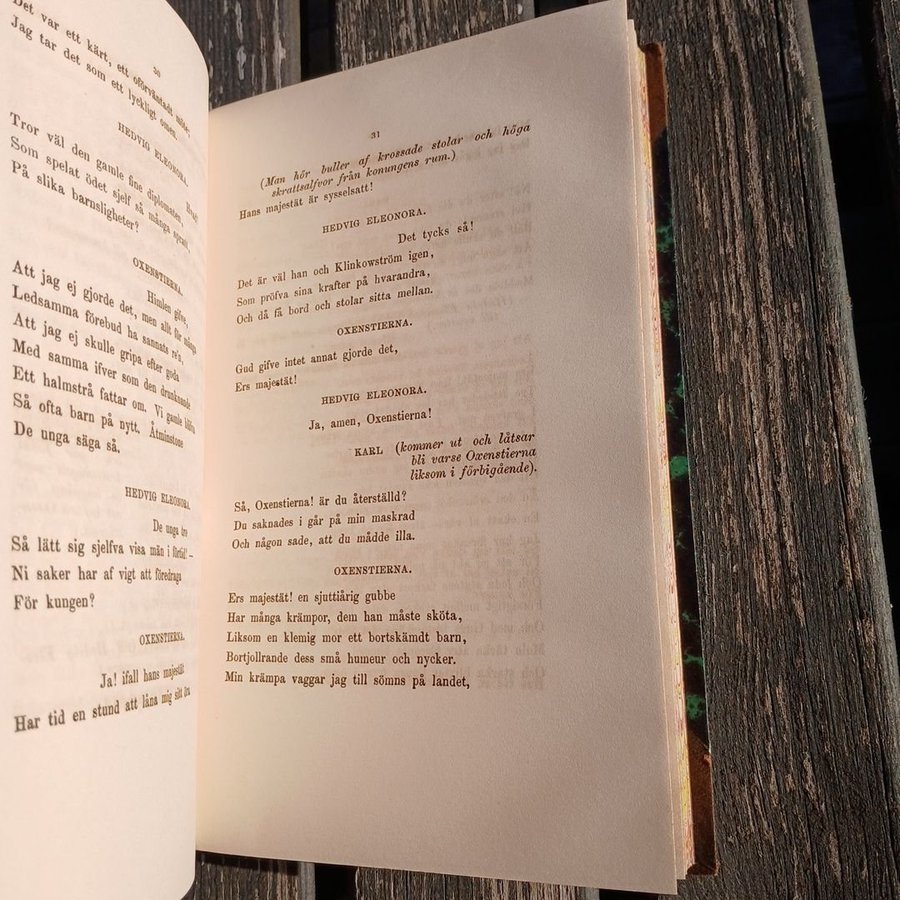 Det var ett kärt, ett oförväntadt möte;
30
Jag tar det som ett lyckligt omen.
HEDVIG ELEONORA.
Hvad!
Tror väl den gamle fine diplomaten,
Som spelat ödet sjelf så många spratt,
På slika barnsligheter?
OXENSTIERNA.
Himlen gifve,
Att jag ej gjorde det, men allt för många
Ledsamma förebud ha sannats re'n,
Att jag ej skulle gripa efter goda
Med samma ifver som den drunknande
Ett halmstrå fattar om. Vi gamle blifva
Så ofta barn på nytt. Åtminstone
De unga säga så.
HEDVIG ELEONORA.
De unga tro
Så lätt sig sjelfva visa män i förtid! —
Ni saker har af vigt att föredraga
För kungen?
OXENSTIERNA.
Ja! ifall hans majestät
Har tid en stund att låna mig sitt öra
31
(Man hör buller af krossade stolar och höga
skrattsalfvor från konungens rum.)
Hans majestät är sysselsatt!
HEDVIG ELEONORA.
Det tycks så!
Det är väl han och Klinkowström igen,
Som pröfva sina krafter på hvarandra,
Och då få bord och stolar sitta mellan.
OXENSTIERNA.
Gud gifve intet annat gjorde det,
Ers majestät!
HEDVIG ELEONORA.
Ja, amen, Oxenstierna!
KARL (kommer ut och låtsar
bli varse Oxenstierna
liksom i förbigående).
Så, Oxenstierna! är du återställd?
Du saknades i går på min maskrad
Och någon sade, att du mådde illa.
OXENSTIERNA.
Ers majestät! en sjuttiårig gubbe
Har många krämpor, dem han måste sköta,
Liksom en klemig mor ett bortskämdt barn,
Bortjollrande dess små humeur och nycker.
Min krämpa vaggar jag till sömns på landet,